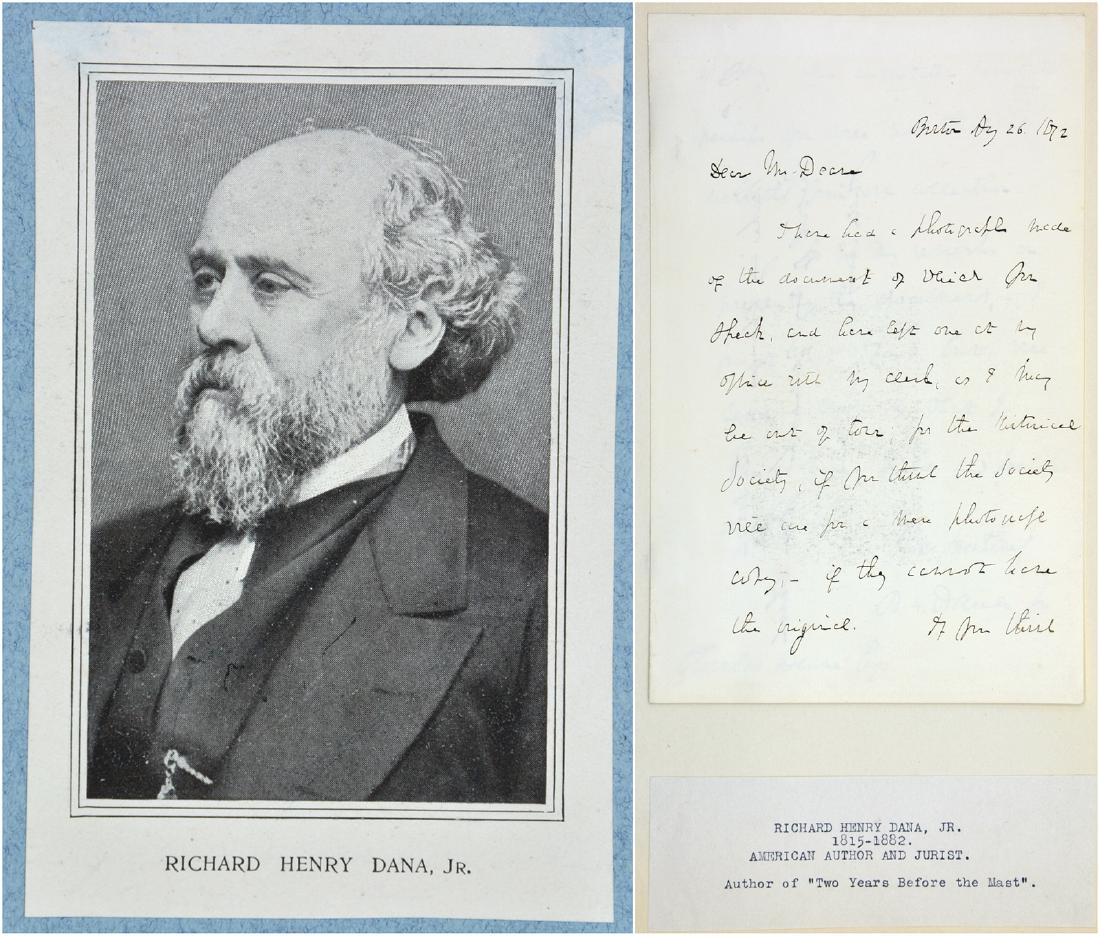 RICHARD HENRY DANA, JR.
Boston 26. 1872
Dear Mr. Deane
I have had a photograph made
of the document of which you
speak, and have left one at my
office with my clerk, as I may
be out of town, for the Historical
Society, if you think the Society
care for a mere photograph
copy, – if they cannot have
the original. If you think
RICHARD HENRY DANA, JR.
1815-1882.
AMERICAN AUTHOR AND JURIST.
Author of "Two Years Before the Mast".